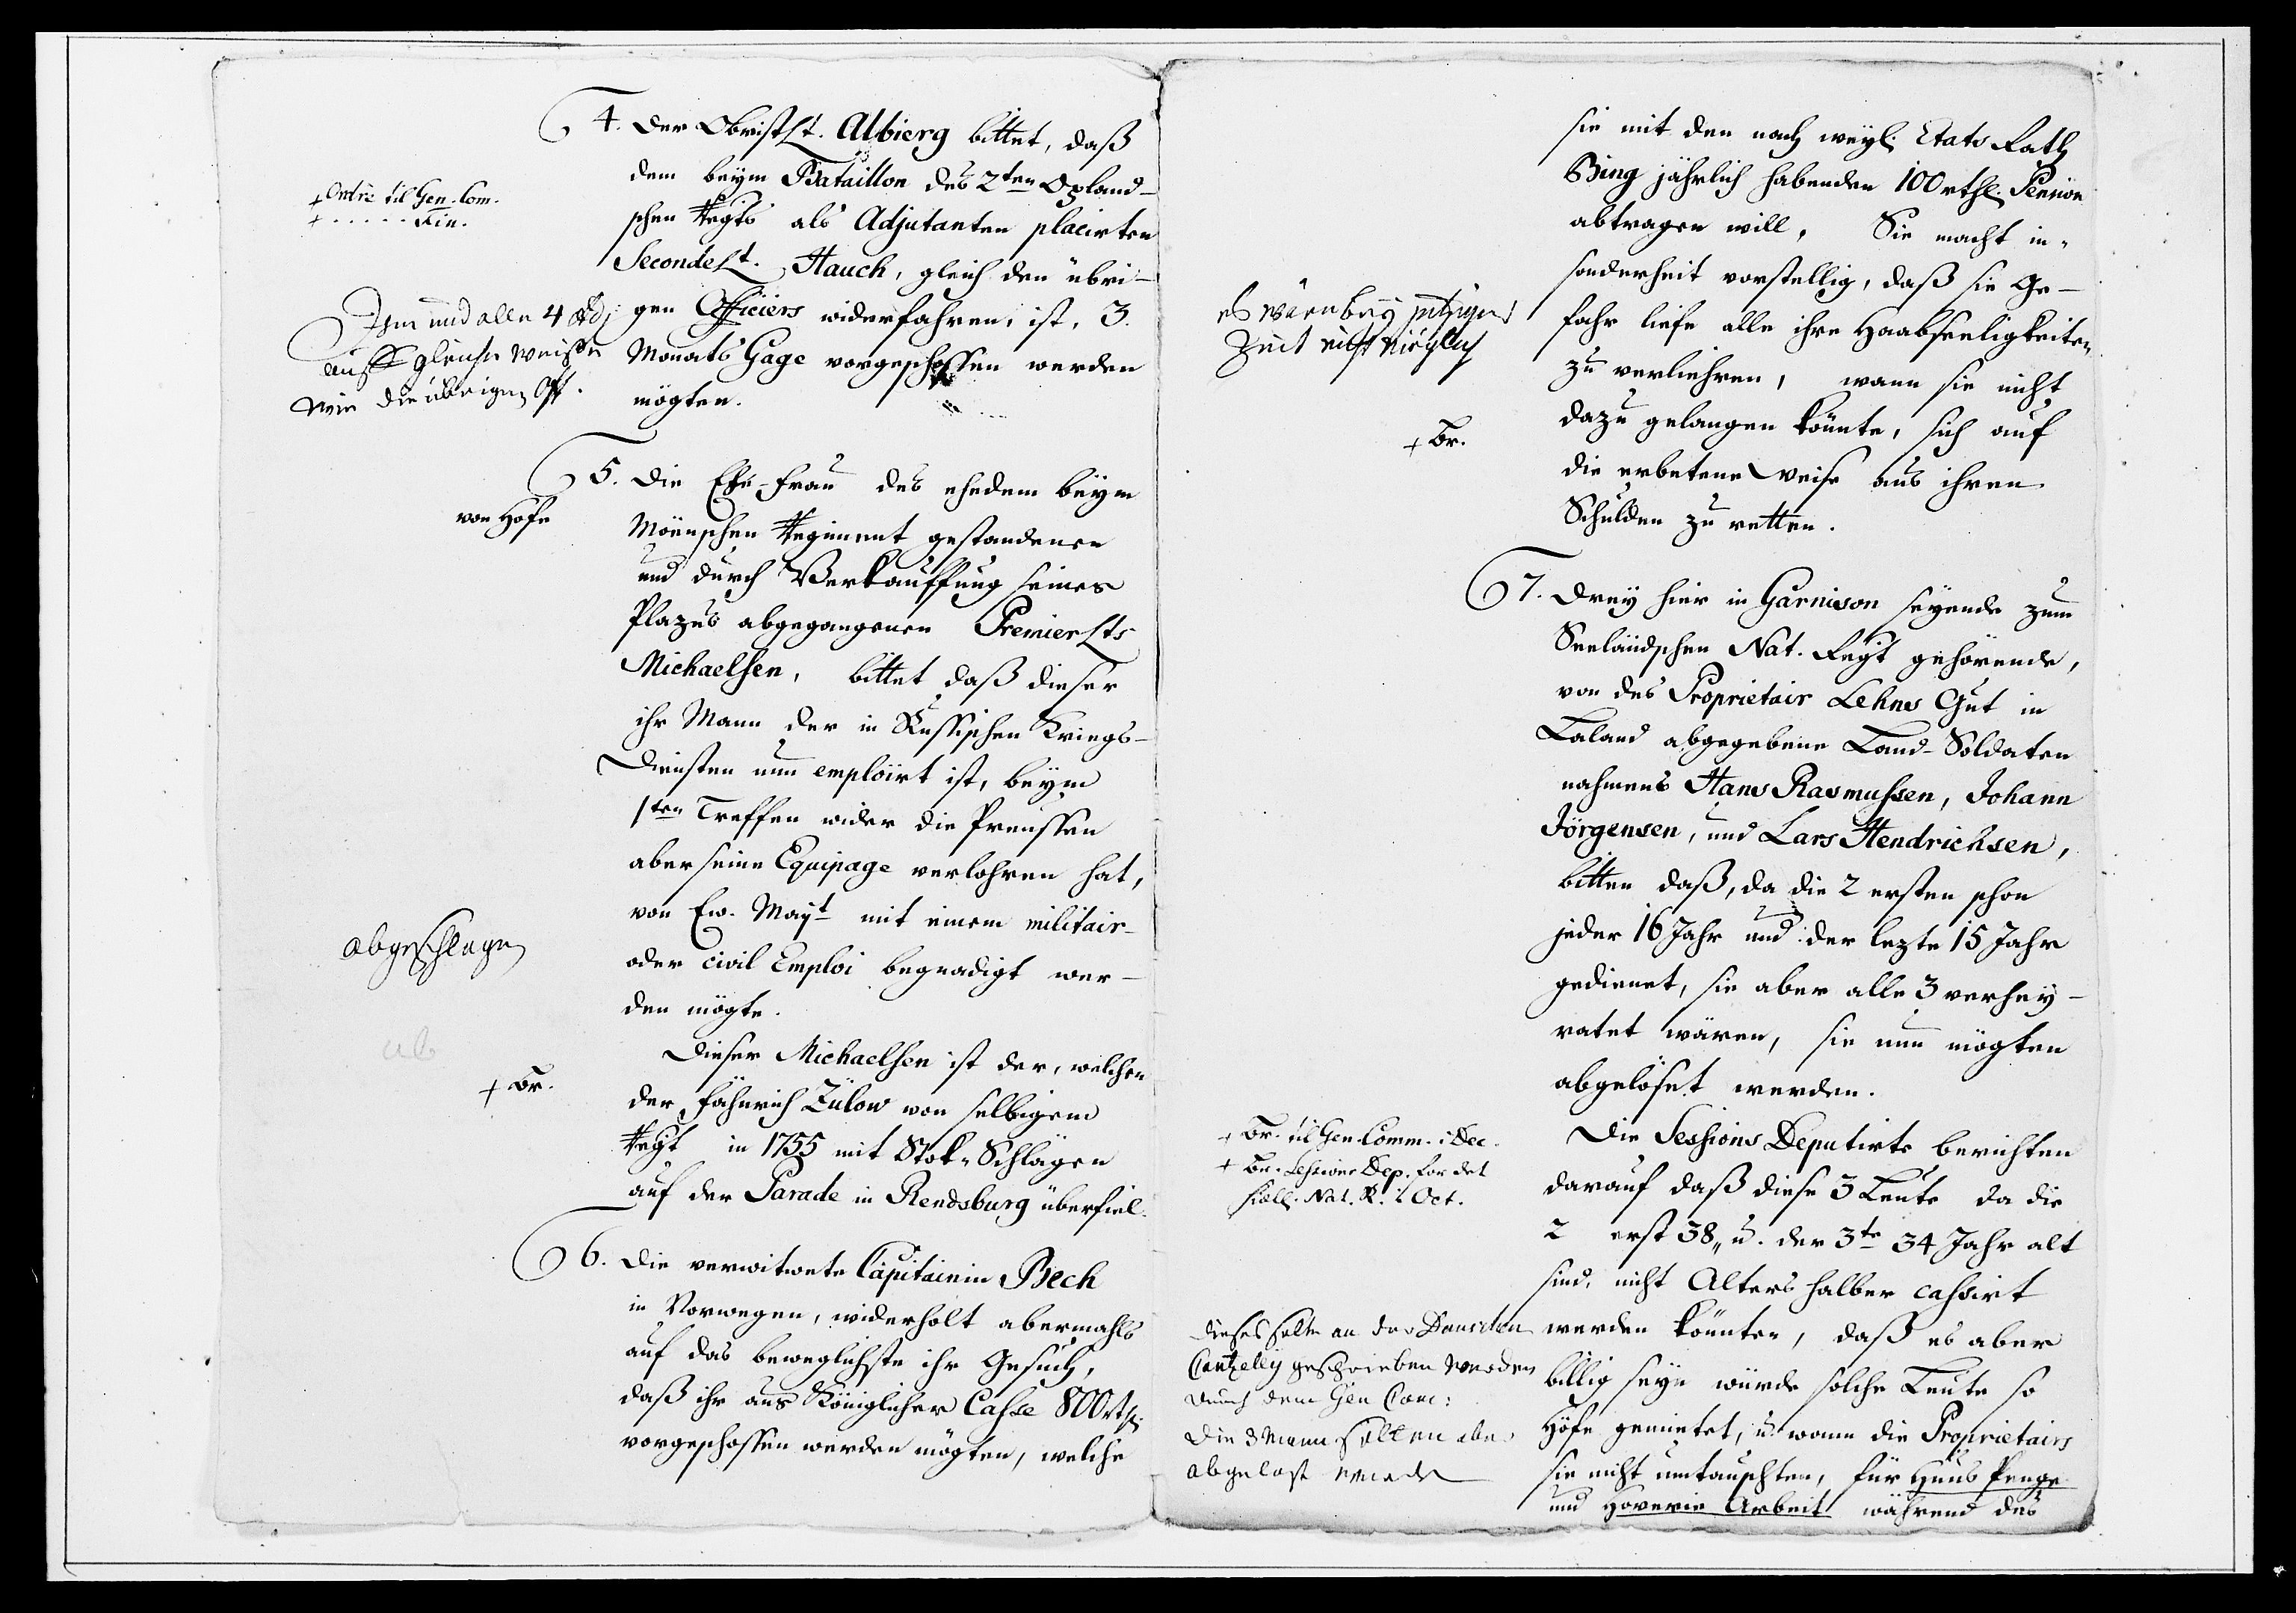 4. Der ObristLt. Albierg bittet, daß
dem beym Bataillon des 2ten Opland-
schen Regts als Adjutanten placirten
SecondeLt. Hauch, gleich den übri-
gen Officiers widerfahren, ist, 3.
Monats Gage vorgeschossen werden
mögten.
+ Ordre til Gen. Com.
+ . . . . . . Fin.
Ihm und allen 4 Adj
auff gleiche weiße
wie die übrigen Off.
5. Die Ehe-Frau des ehedem beym
Möenschen Regiment gestandenen
und durch Verkauffung seines
Plazes abgegangenen PremierLts
Michaelsen, bittet daß dieser
ihr Mann der in Russischen Kriegs-
Diensten nun emploirt ist, beym
1ten Treffen wider die Preussen
aber seine Equipage verlohren hat,
von Ew. Mayt mit einem militair-
oder civil Emploi begnadigt wer-
den mögte.
von Hofe
abgeschlagen
ab
Dieser Michaelsen ist der, welchen
der Fähnrich Zülow von selbigem
Regt in 1755 mit Stok-Schlägen
auf der Parade in Rendsburg überfiel.
+ Br.
6. Die verwitwete Capitainin Bech
in Norwegen, widerholt abermahls
auf das beweglichste ihr Gesuch,
daß ihr aus Königlicher Casse 800 rthl.
vorgeschossen werden mögten, welche
sie mit den nach weyl. Etats Rath
Bing jährlich habenden 100 rthl. Pension
abtragen will, Sie macht in-
sonderheit vorstellig, daß sie Ge-
fahr liefe alle ihre Haabseeligkeiten
zu verliehren, wann sie nicht
dazu gelangen könnte, sich auf
die erbetene Weise aus ihren
Schulden zu retten.
es wäre bey jetziger
Zeit nicht möglich
+ Br.
7. Drey hier in Garnison seyende zum
Seeländschen Nat. Regt gehörende,
von des Proprietair Lehns Gut in
Laland abgegebene Land-Soldaten
nahmens Hans Rasmussen, Johann
Jörgensen, und Lars Hendrichsen,
bitten daß, da die 2 ersten schon
jeder 16 Jahr und der lezte 15 Jahr
gedienet, sie aber alle 3 verhey-
ratet wären, sie nun mögten
abgelöset werden.
Die Sessions Deputirte berichten
darauf daß diese 3 Leute da die
2 erst 38, u. der 3te 34 Jahr alt
sind, nicht Alters halber cassirt
werden könnten, daß es aber
billig seyn würde solche Leute so
Höfe gemietet, u. wann die Proprietairs
sie nicht umtauschten, für Huus Penge
und Hoverie Arbeit während des
+ Br. til Gen. Comm. i Dec.
+ Br. Sessions Dep. for det
siell. Nat. R. i Oct.
dieses solte an der Danschen
Cantzelly geschrieben werden
durch dem Gen Com:
die 3 Mann sollen aber
abgelost werde